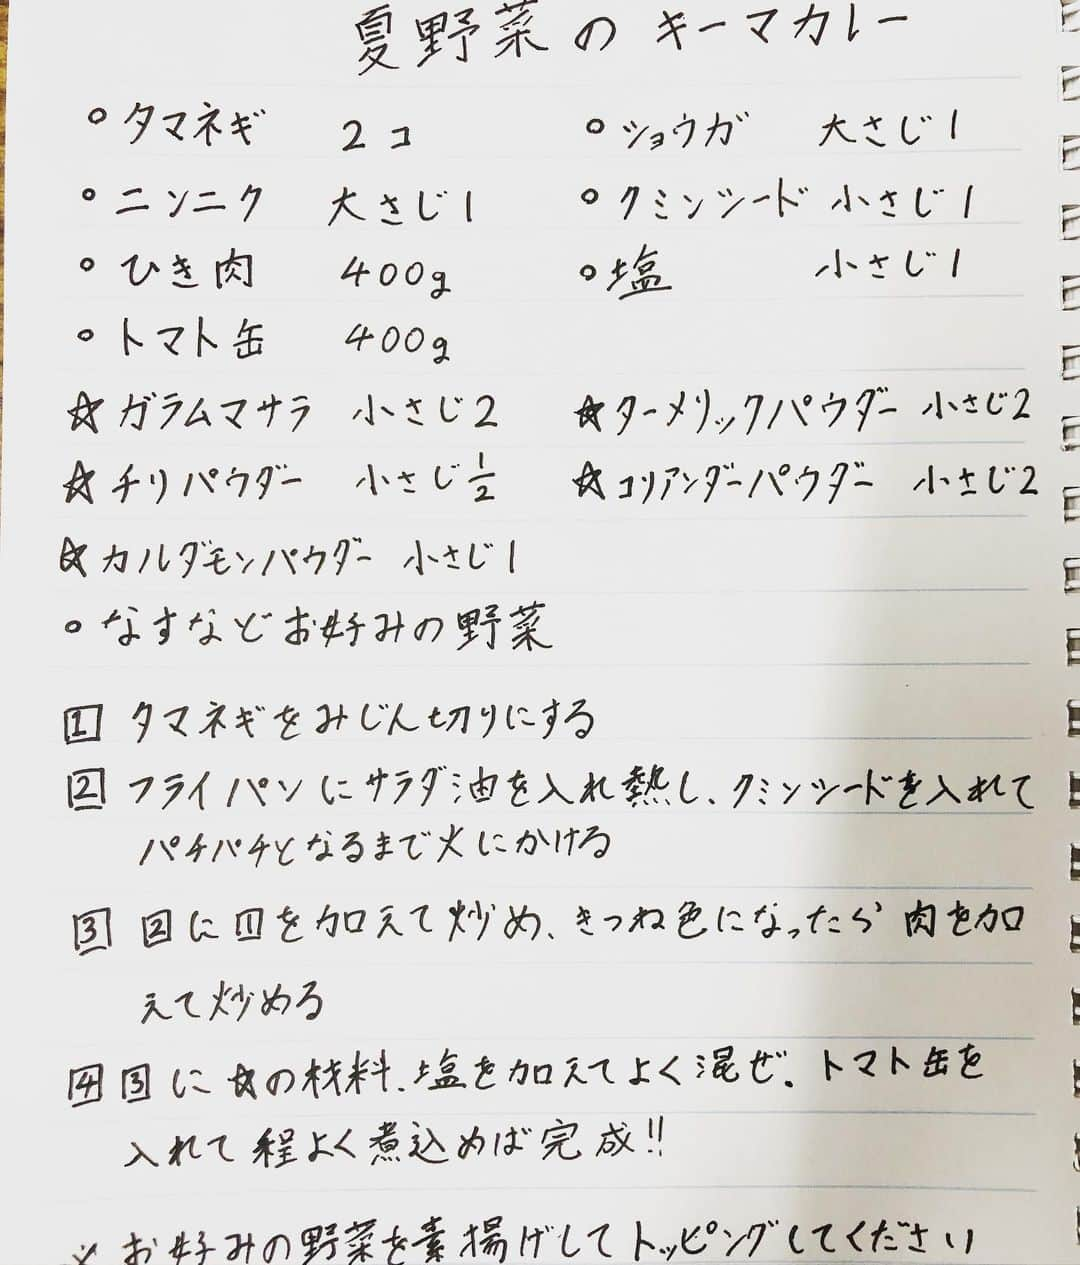 夏野菜のキーマカレー
○タマネギ 2コ ○ショウガ 大さじ1
○ニンニク 大さじ1 ○クミンシード 小さじ1
○ひき肉 400g ○塩 小さじ1
○トマト缶 400g
☆ガラムマサラ 小さじ2 ☆ターメリックパウダー 小さじ2
☆チリパウダー 小さじ1/2 ☆コリアンダーパウダー 小さじ2
☆カルダモンパウダー 小さじ1
○なすなどお好みの野菜
1 タマネギをみじん切りにする
2 フライパンにサラダ油を入れ熱し、クミンシードを入れて
パチパチとなるまで火にかける
3 2に1を加えて炒め、きつね色になったら肉を加
えて炒める
4 3に☆の材料、塩を加えてよく混ぜ。トマト缶を
入れて程よく煮込めば完成!!
※お好みの野菜を素揚げしてトッピングしてください